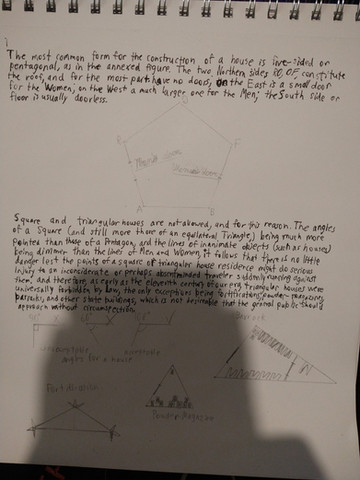 The most common form for the construction of a house is five-sided or
pentagonal, as in the annexed figure. The two Northern sides RO, OF constitute
the roof, and for the most part have no doors; on the East is a small door
for the Women; on the West a much larger one for the Men; the South side or
floor is usually doorless.
Square and triangular houses are not allowed, and for this reason. The angles
of a Square (and still more those of an equilateral Triangle,) being much more
pointed than those of a Pentagon, and the lines of inanimate objects (such as houses)
being dimmer than the lines of Men and Women, it follows that there is no little
danger lest the points of a square of triangular house residence might do serious
injury to an inconsiderate or perhaps absentminded traveler suddenly running against
them; and therefore, as early as the eleventh century of our era, triangular houses were
universally forbidden by Law, the only exceptions being fortifications, powder-magazines,
barracks, and other state buildings, which is not desirable that the general public should
approach without circumspection.
angles for a house
Fortification
Powder Magazine